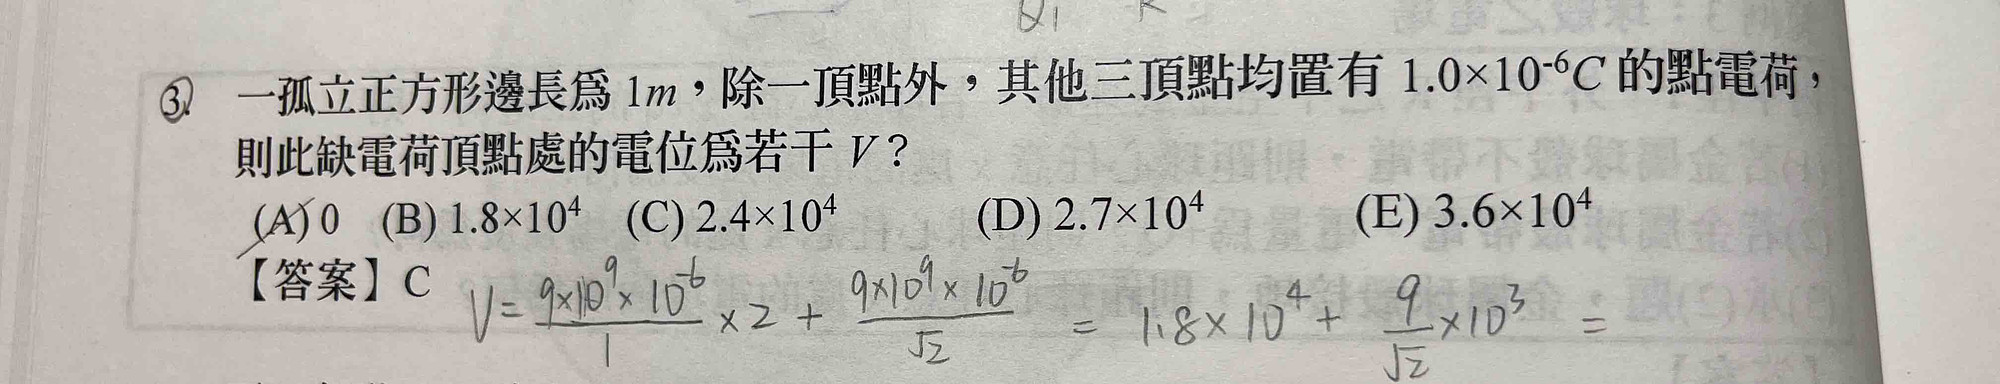 Q₁
③. 一孤立正方形邊長為 1m，除一頂點外，其他三頂點均置有 1.0×10⁻⁶C 的點電荷，
則此缺電荷頂點處的電位為若干 V？
(A) 0 (B) 1.8×10⁴ (C) 2.4×10⁴ (D) 2.7×10⁴ (E) 3.6×10⁴
【答案】C V = 9×10⁹×10⁻⁶/1 ×2 + 9×10⁹×10⁻⁶/√2 = 1.8×10⁴ + 9/√2 ×10³ =